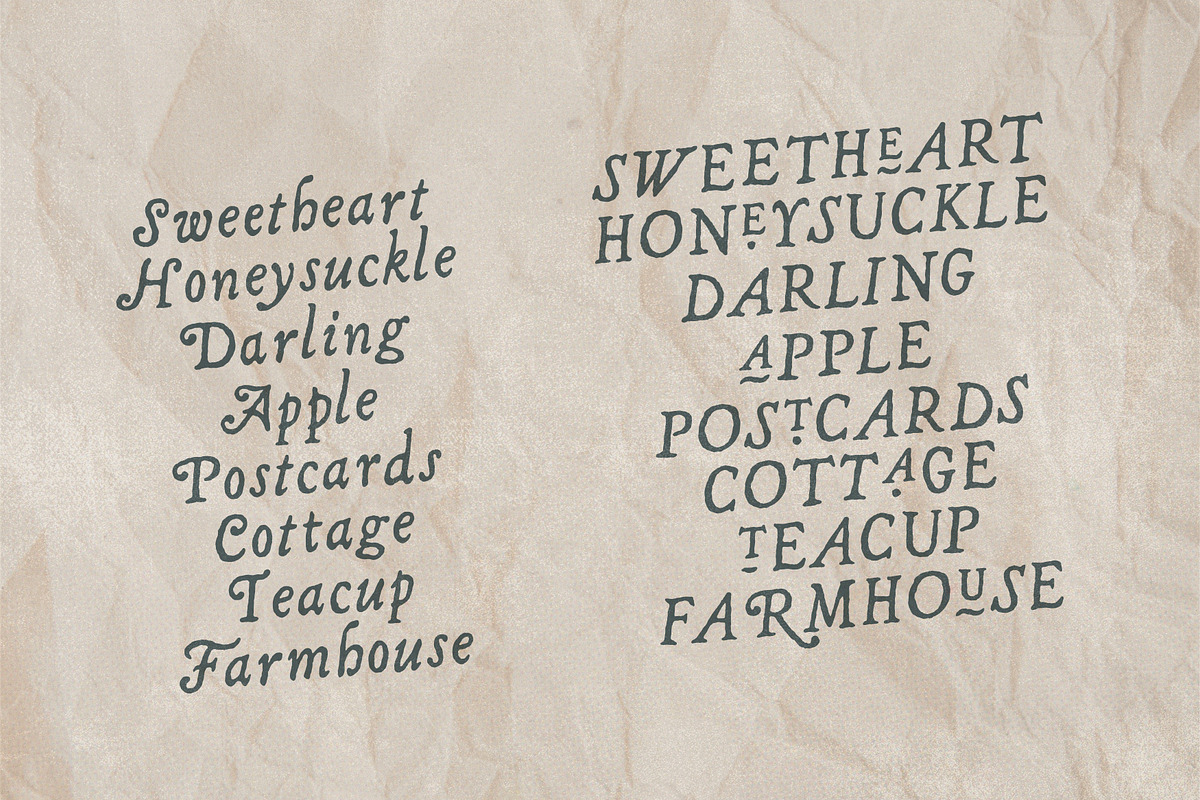 Sweetheart
Honeysuckle
Darling
Apple
Postcards
Cottage
Teacup
Farmhouse
SWEETHEART
HONEYSUCKLE
DARLING
APPLE
POSTCARDS
COTTAGE
TEACUP
FARMHOUSE